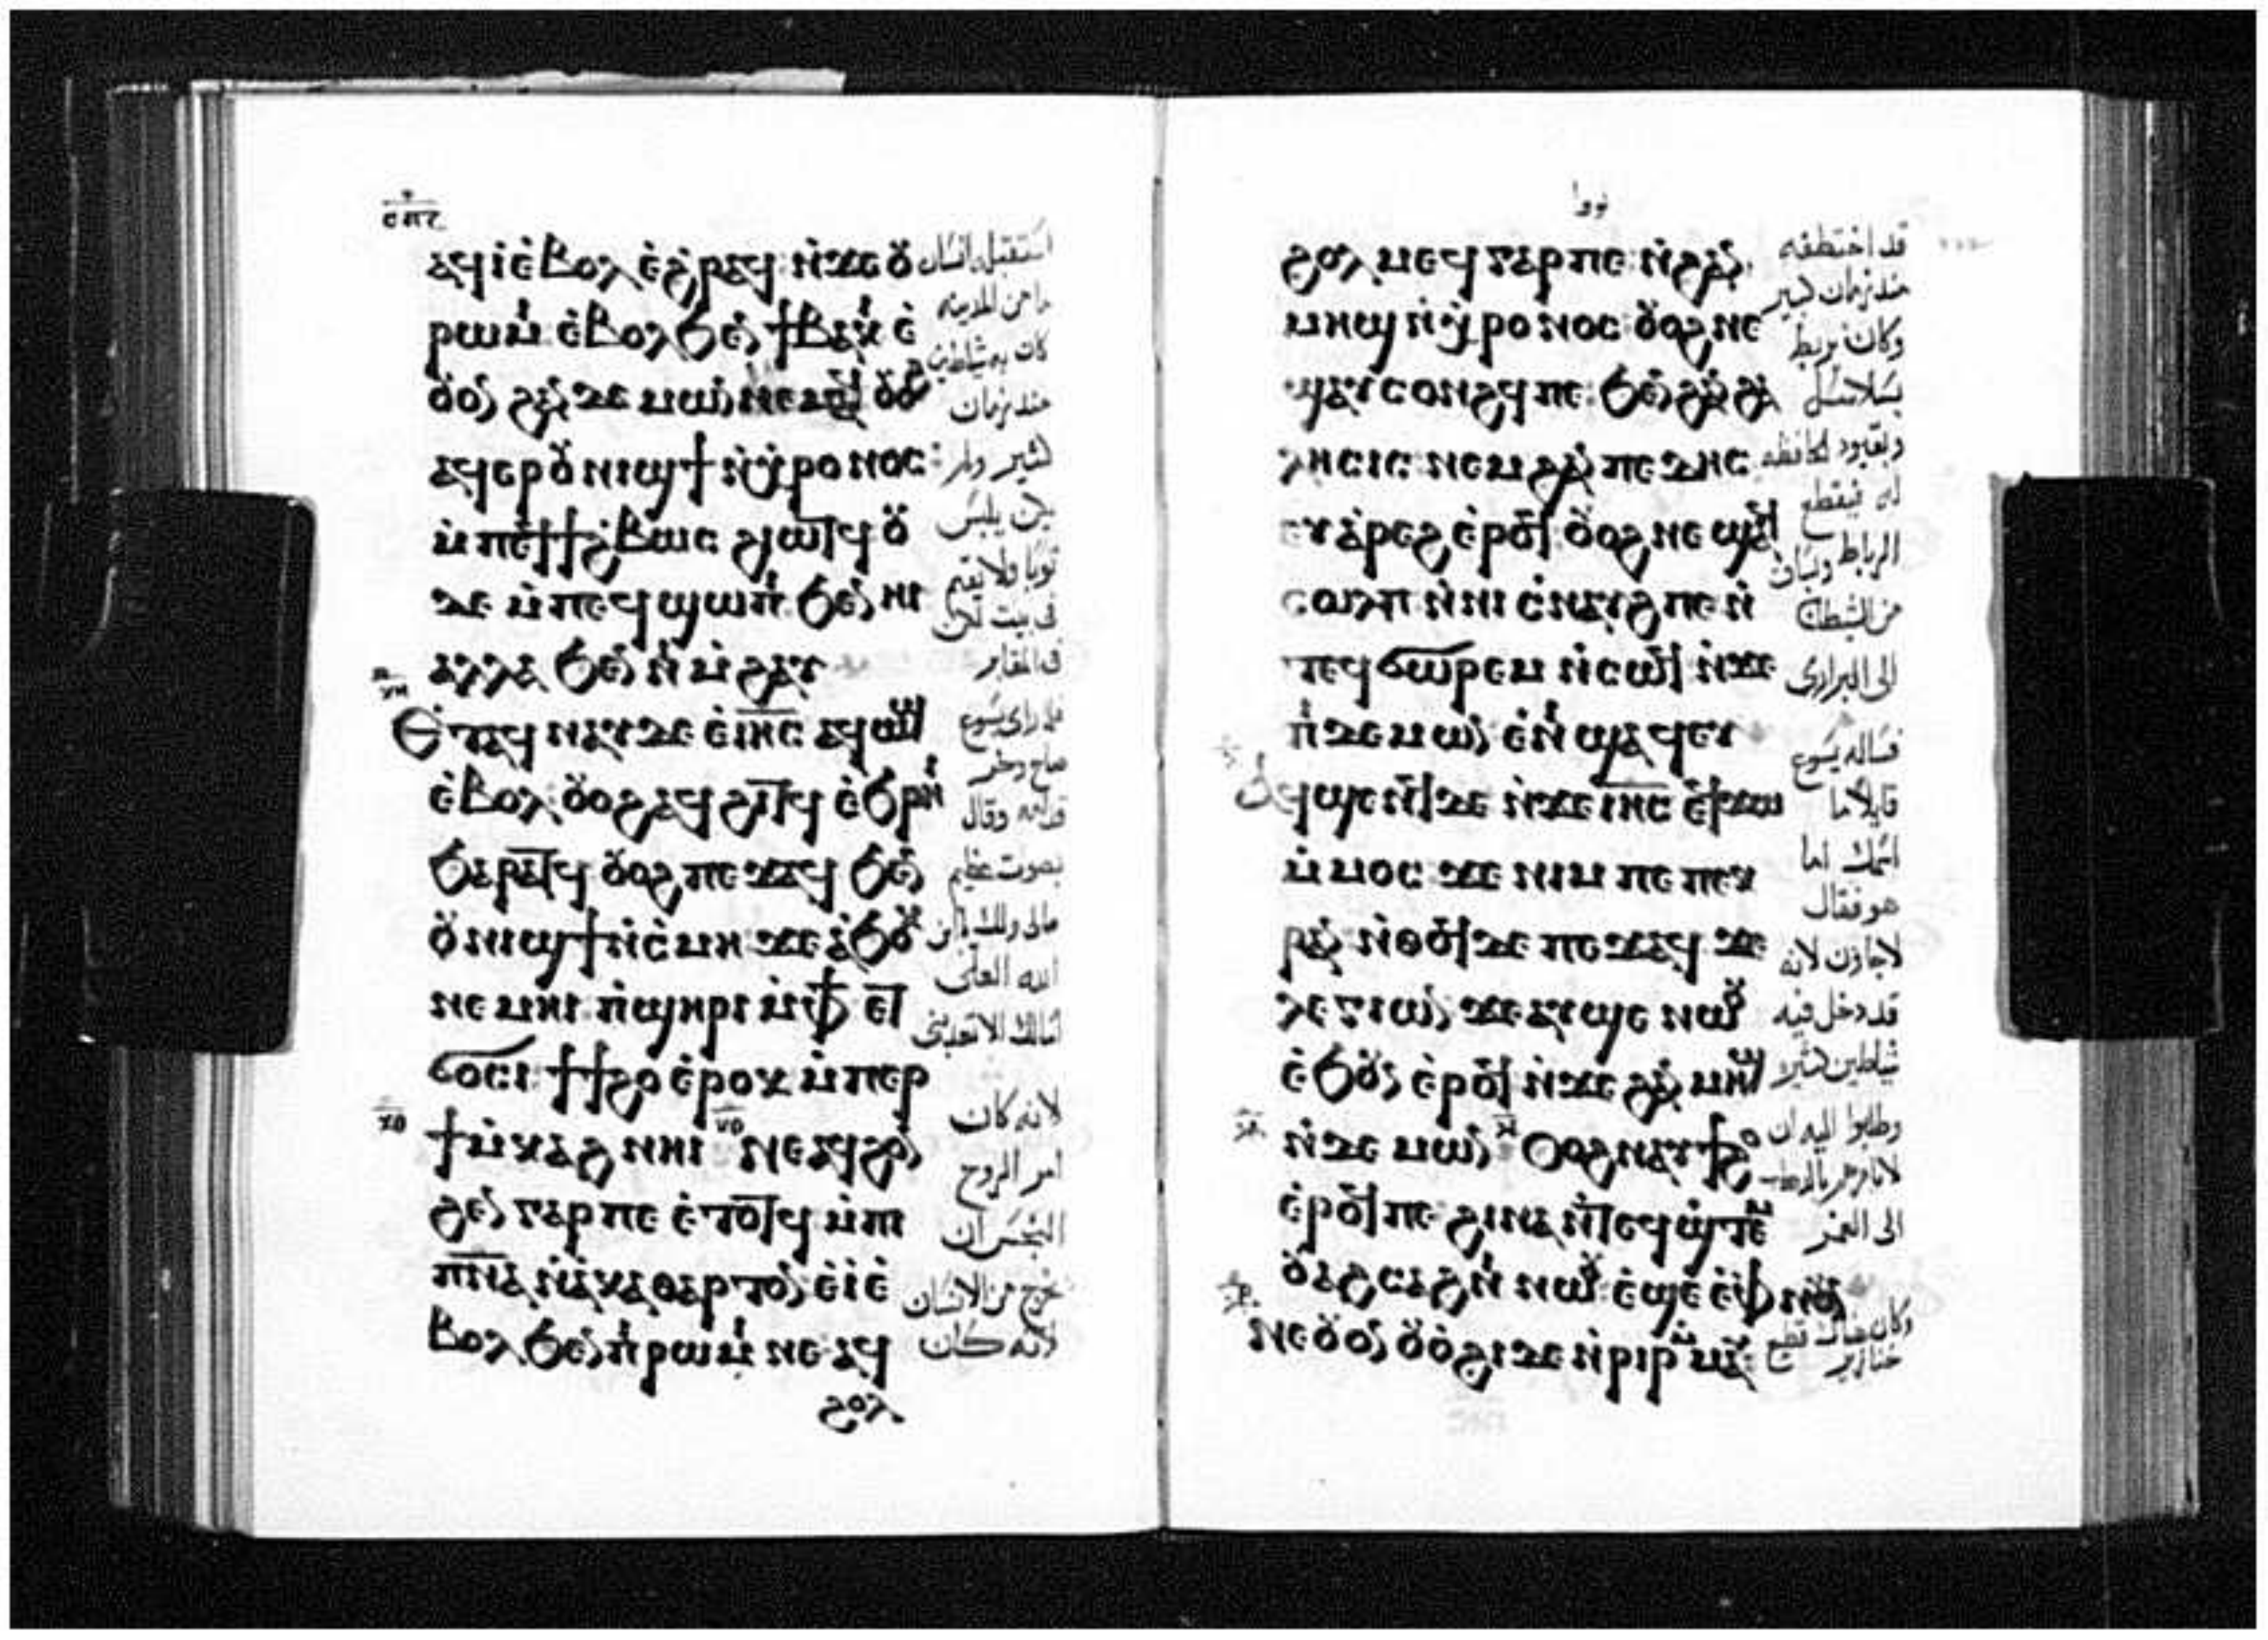 ⲁϥⲓ̀ⲉ̀ⲃⲟⲗ ⲉ̀ϩ̀ⲣⲁϥ ⲛ̀ϫⲉⲟⲩ
ⲣⲱⲙⲓ ⲉ̀ⲃⲟⲗϧⲉⲛ ϯⲃⲁⲕⲓ ⲉ̀
ⲟⲩⲟⲛ ϩⲁⲛⲇⲉⲙⲱⲛ ⲛⲉⲙⲁϥ ⲟⲩⲟϩ
ⲁϥⲉⲣⲟⲩⲛⲓϣϯ ⲛ̀ⲭ̀ⲣⲟⲛⲟⲥ:
ⲙ̀ⲡⲉϥϯϩ̀ⲃⲱⲥ ϩⲓⲱⲧϥ ⲟⲩ
ⲇⲉ ⲙ̀ⲡⲉϥϣⲱⲡⲓ ϧⲉⲛ ⲏⲓ
ⲁⲗⲗⲁ ϧⲉⲛ ⲛⲓ ⲙ̀ϩⲁⲩ
ⲉⲧⲁϥ ⲛⲁⲩ ⲇⲉ ⲉ̀ⲓⲏⲥ ⲁϥⲱϣ
ⲉ̀ⲃⲟⲗ: ⲟⲩⲟϩⲁϥ ϩⲓⲧϥ ⲉ̀ϧⲣⲏⲓ
ϧⲁⲣⲁⲧϥ ⲟⲩⲟϩ ⲡⲉϫⲁϥ ϧⲉⲛ
ⲟⲩⲛⲓϣϯ ⲛ̀ⲥ̀ⲙⲏ ϫⲉ ⲁ̀ϧⲟⲕ
ⲛⲉⲙⲏⲓ ⲡ̀ϣⲏⲣⲓ ⲙ̀ⲫϯ ⲉⲧ
ϭⲟⲥⲓ: ϯϯϩⲟ ⲉ̀ⲣⲟⲕ ⲙ̀ⲡⲉⲣ
ϯⲙ̀ⲕⲁϩ ⲛⲏⲓ ⲛⲉⲁϥϩⲟⲛ
ϩⲉⲛ ⲅⲁⲣ ⲡⲉ ⲉ̀ⲧⲟⲧϥ ⲙ̀ⲡⲓ
ⲡⲛⲁ ⲛ̀ⲁ̀ⲕⲁⲑⲁⲣⲧⲟⲛ ⲉ̀ⲓ̀ⲉ̀
ⲃⲟⲗ ϧⲉⲛ ⲡⲓⲣⲱⲙⲓ ⲛⲉ ⲁϥ
ϩⲟⲗ
استقبله انسان
ما من المدينة
كان به شياطين
منذ زمان
كثير ولم
يكن يلبس
ثوبا ولا يقيم
في بيت لكن
في المقابر
فلما راى يسوع
صاح وخر
قدامه وقال
بصوت عظيم
مالي ولك يا ابن
الله العلي
اسالك الا تعذبني
لانه كان
امر الروح
النجس ان
يخرج من الانسان
لانه كان
ϩⲟⲗⲙⲉϥ ⲅⲁⲣ ⲡⲉ ⲛ̀ϩⲁⲛ
ⲙⲏϣ ⲛ̀ⲭ̀ⲣⲟⲛⲟⲥ ⲟⲩⲟϩ ⲛⲉ
ϣⲁⲩⲥⲟⲛϩϥ ⲡⲉ: ϧⲉⲛ ϩⲁⲛ ϩⲁ
ⲗⲏⲥⲓⲥ ⲛⲉⲙ ϩⲁⲛ ⲡⲉⲇⲏⲥ
ⲉⲩⲁ̀ⲣⲉϩ ⲉ̀ⲣⲟϥ ⲟⲩⲟϩ ⲛⲉ ϣⲁϥ
ⲥⲱⲗⲡ ⲛ̀ⲛⲓ ⲥ̀ⲛⲁⲩϩ ⲡⲉ ⲛ̀
ⲧⲉϥ ⲥⲱⲣⲉⲙ ⲛ̀ⲥⲱϥ ⲛ̀ϫⲉ
ⲡⲓ ⲇⲉⲙⲱⲛ ⲉ̀ⲛⲓ ϣⲁϥⲉⲩ
ⲁϥϣⲉⲛϥ ⲇⲉ ⲛ̀ϫⲉ ⲓⲏⲥ ⲉϥϫⲱ
ⲙ̀ⲙⲟⲥ ϫⲉ ⲛⲓⲙ ⲡⲉ ⲡⲉⲕ
ⲣⲁⲛ ⲛ̀ⲑⲟϥ ⲇⲉ ⲡⲉϫⲁϥ ϫⲉ
ⲗⲉⲅⲓⲱⲛ ϫⲉ ⲁⲩϣⲉ ⲛⲱⲟⲩ
ⲉ̀ϧⲟⲩⲛ ⲉ̀ⲣⲟϥ ⲛ̀ϫⲉ ϩⲁⲛ ⲙⲏϣ
ⲛ̀ⲇⲉⲙⲱⲛ ⲟⲩⲟϩ ⲛⲁⲩϯϩⲟ
ⲉ̀ⲣⲟϥ ⲡⲉ ϩⲓⲛⲁ ⲛ̀ⲧⲉϥ ϣ̀ⲧⲉⲙ
ⲟⲩⲁϩⲥⲁϩⲛⲓ ⲛⲱⲟⲩ ⲉ̀ϣⲉ ⲉ̀ⲫⲛⲟⲩⲛ
ⲛⲉ ⲟⲩⲟⲛ ⲟⲩⲟ̀ϩⲓ ⲇⲉ ⲛ̀ⲣⲓⲣ ⲙ̀ⲙⲁⲩ:
قد اختطفه
منذ زمان كبير
وكان يربط
بسلاسل
وبقيود لحافظه
له فيقطع
الرباط ويساق
من الشيطان
الى البراري
فساله يسوع
قايلا ما
اسمك اما
هو فقال
لاجاون لانه
قد دخل فيه
شياطين كثيرة
وطلبوا اليه ان
لا يامرهم بالذهاب
الى العمق
وكان هناك قطيع
خنازير